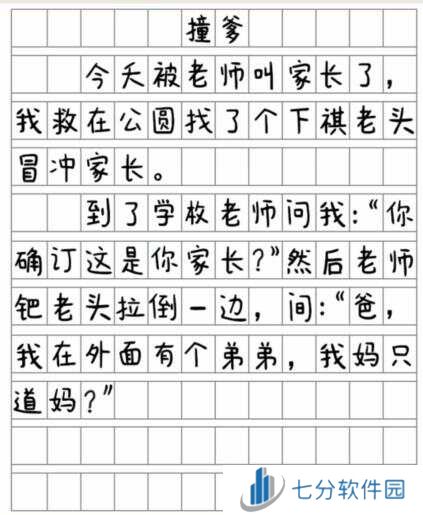 撞爹
今天被老师叫家长了，
我救在公圆找了个下祺老头
冒冲家长。
到了学校老师问我：“你
确订这是你家长？”然后老师
钯老头拉倒一边，间：“爸，
我在外面有个弟弟，我妈只
道妈？”
七分软件园